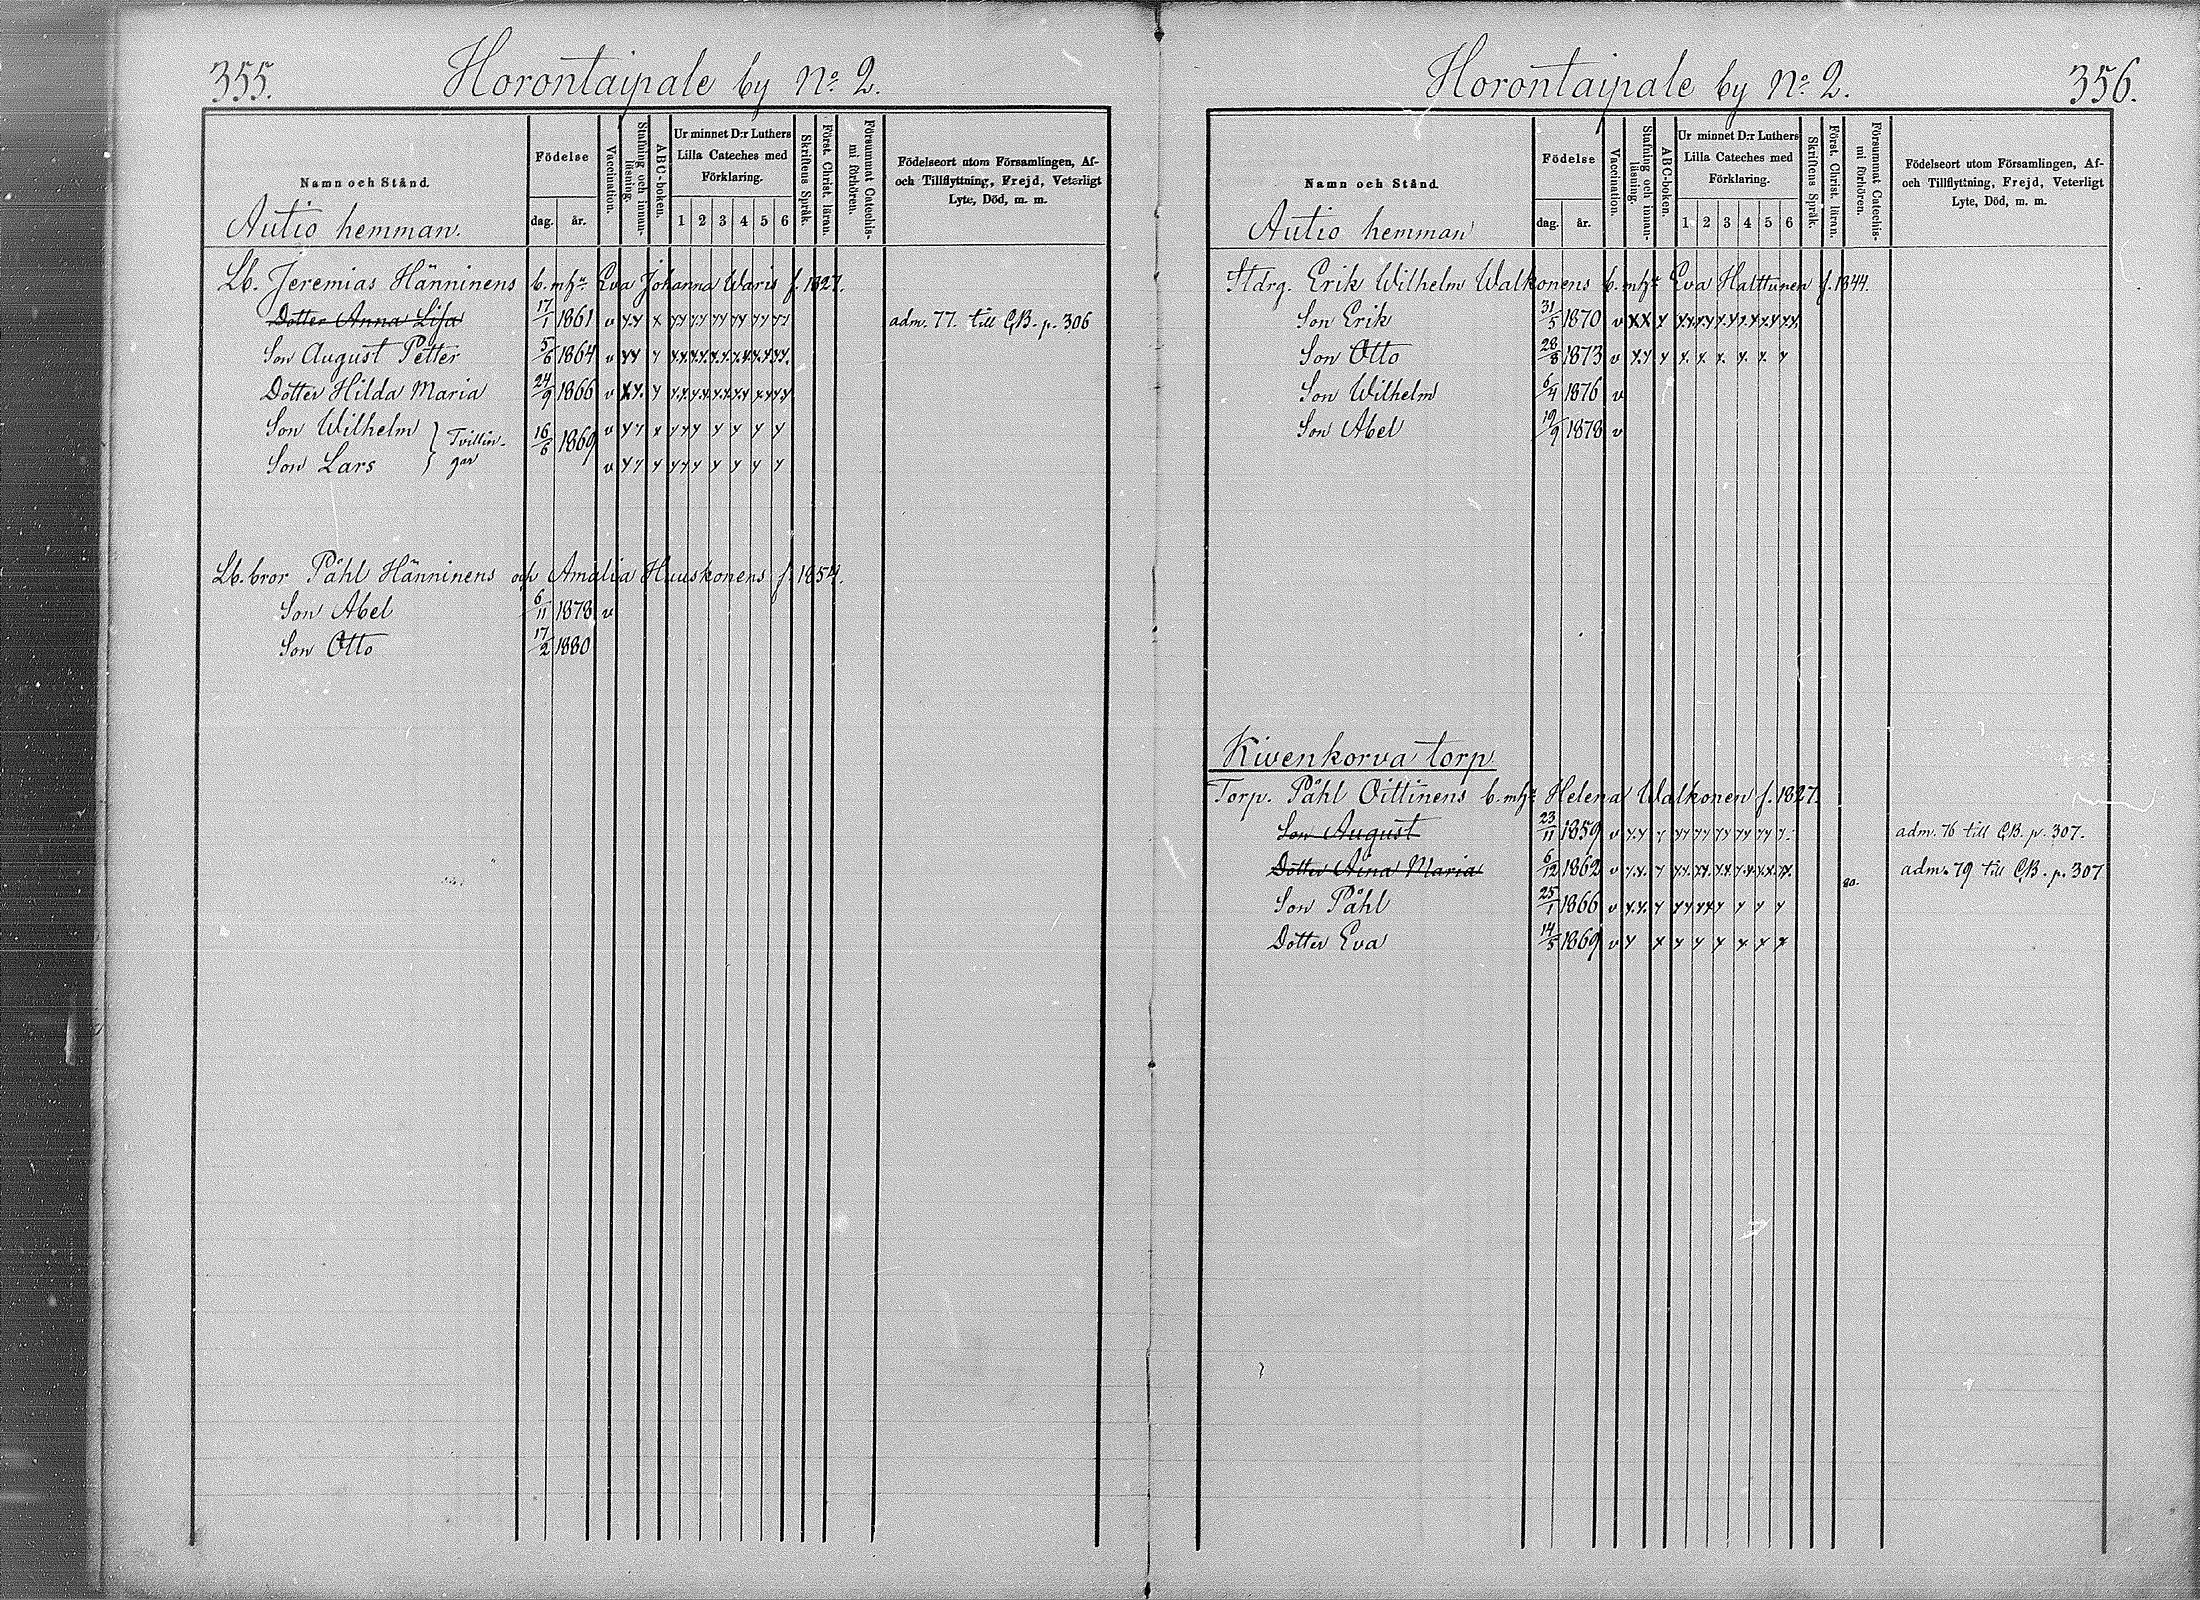 355.
Horontaipale by No 2.
Namn och Stånd.
Födelse
dag.
år.
Vaccination.
Stafning och innan-
läsning.
ABC-boken.
Ur minnet D:r Luthers
Lilla Cateches med
Förklaring.
1 2 3 4 5 6
Skriftens Språk.
Först. Christ. läran.
Försummat Catechis-
mi förhören.
Födelseort utom Församlingen, Af-
och Tillflyttning, Frejd, Veterligt
Lyte, Död, m. m.
Autio hemman.
Lb. Jeremias Hänninens b. m hn Eva Johanna Waris f. 1827.
Dotter Anna Lisa 17/1 1861 v adm. 77. till GB. p. 306
Son August Petter 5/6 1864 v
Dotter Hilda Maria 24/9 1866 v
Son Wilhelm } Tvillin- 16/6 1869 v
Son Lars } gar v
Lb. bror Påhl Hänninens och Amalia Huuskonens f. 1854.
Son Abel 6/11 1878 v
Son Otto 17/2 1880
356.
Horontaipale by No 2.
Namn och Stånd.
Födelse
dag.
år.
Vaccination.
Stafning och innan-
läsning.
ABC-boken.
Ur minnet D:r Luthers
Lilla Cateches med
Förklaring.
1 2 3 4 5 6
Skriftens Språk.
Först. Christ. läran.
Försummat Catechis-
mi förhören.
Födelseort utom Församlingen, Af-
och Tillflyttning, Frejd, Veterligt
Lyte, Död, m. m.
Autio hemman
Stdrg. Erik Wilhelm Walkonens b. m hn Eva Halttunen f. 1844.
Son Erik 31/5 1870 v
Son Otto 28/8 1873 v
Son Wilhelm 6/4 1876 v
Son Abel 19/9 1878 v
Kivenkorva torp
Torp. Påhl Oittinens b. m hn Helena Walkonen f. 1827.
Son August 23/11 1859 v adm. 76 till GB. p. 307.
Dotter Aina Maria 6/12 1862 v 80. adm. 79 till GB. p. 307
Son Påhl 25/1 1866 v
Dotter Eva 14/5 1869 v